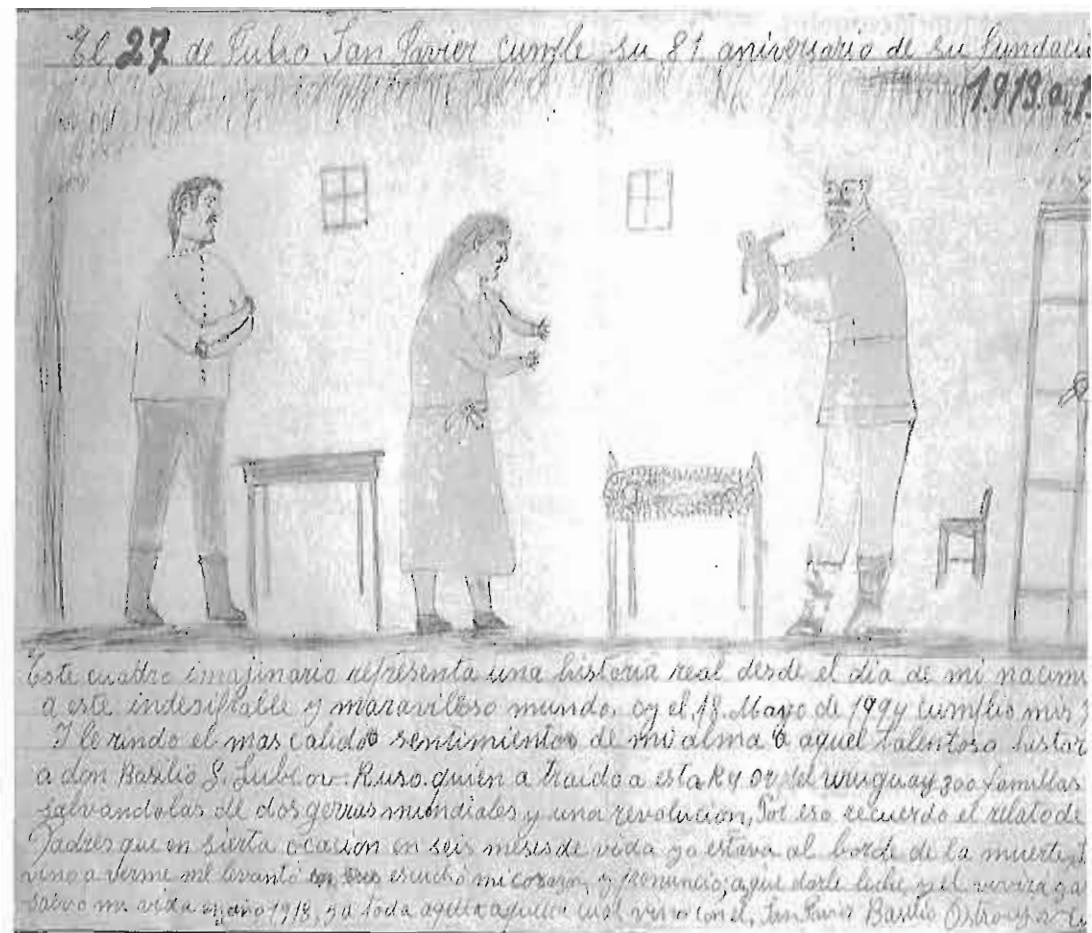 El 27 de Julio San Javier cumple su 81 aniversario de su fundaci
1.913. a
Este cuadro imajinario representa una historia real desde el dia de mi nacimi
a este indesifrable y maravilloso mundo. oy el 18 Mayo de 1994 cumplio mis
I le rindo el mas calido sentimientos de mi alma a aquel talentoso histor
a don Basilio S. Lubcov. Ruso. quien a traido a esta del uruguay 300 familias
salvandolas de dos gerras mundiales y una revolucion, Por eso recuerdo el relato de
Padres que en sierta ocacion en seis meses de vida yo estava al borde de la muerte,
vino a verme me levantó escuchó mi corazon, y pronuncio; darle leche, y el vivira
salvo mi vida año 1913, toda San Javier Basilio